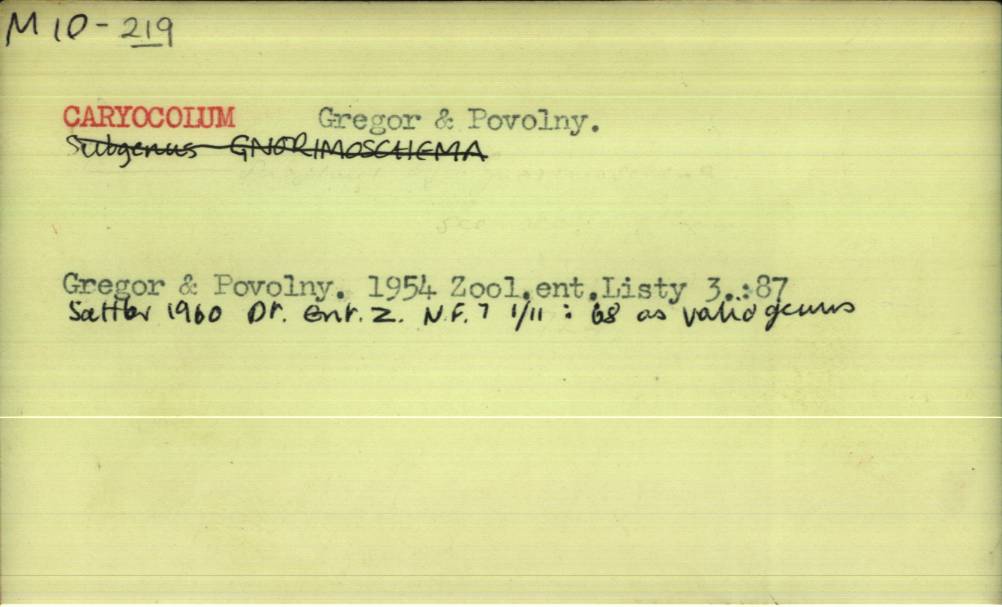 M 10-219
CARYOCOLUM Gregor & Povolny.
Subgenus GNORIMOSCHEMA
Gregor & Povolny. 1954 Zool.ent.Listy 3.:87
Sattler 1960 Dt. Ent. Z. N.F. 7 1/11 : 68 as valid genus